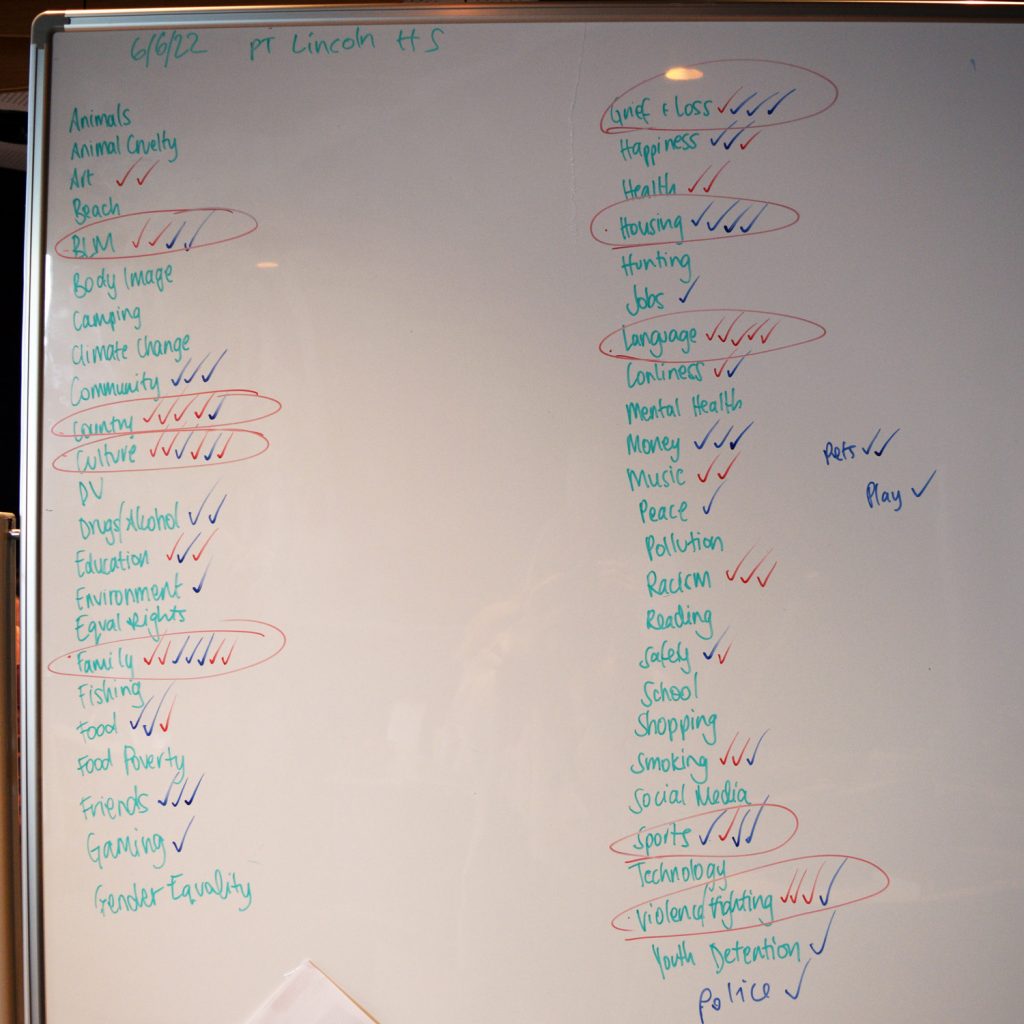 6/6/22 PT Lincoln HS
Animals
Animal Cruelty
Art ✓✓
Beach
BLM ✓✓✓✓
Body Image
Camping
Climate Change
Community ✓✓✓
Country ✓✓✓✓✓
Culture ✓✓✓✓✓✓
DV
Drugs/Alcohol ✓✓
Education ✓✓✓
Environment ✓
Equal Rights
Family ✓✓✓✓✓✓✓
Fishing
Food ✓✓✓
Food Poverty
Friends ✓✓✓
Gaming ✓
Gender Equality
Grief + Loss ✓✓✓✓
Happiness ✓✓✓
Health ✓✓
Housing ✓✓✓✓
Hunting
Jobs ✓
Language ✓✓✓✓✓
Lonliness ✓✓
Mental Health
Money ✓✓✓
Music ✓✓
Peace ✓
Pollution
Racism ✓✓✓
Reading
Safety ✓✓
School
Shopping
Smoking ✓✓✓
Social Media
Sports ✓✓✓✓
Technology
Violence/fighting ✓✓✓✓
Youth Detention ✓
Police ✓
Pets ✓✓
Play ✓